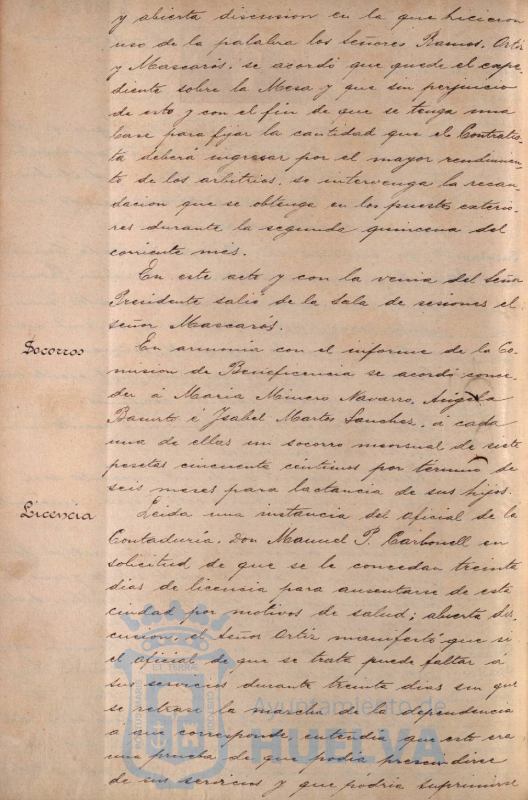 y abierta discusion en la que hicieron
uso de la palabra los Señores Ramos, Ortiz
y Mascarós, se acordó que quede el expe
diente sobre la Mesa y que sin perjuicio
de esto y con el fin de que se tenga una
base para fijar la cantidad que el Contratis-
ta deberá ingresar por el mayor rendimien-
to de los arbitrios, se intervenga la recau
dacion que se obtenga en los puestos exterio-
res durante la segunda quincena del
corriente mes.
En este acto y con la venia del Señor
Presidente salió de la Sala de sesiones el
señor Mascarós.
Socorros
En armonia con el informe de la Co-
mision de Beneficencia se acordó conce-
der á Maria Minero Navarro, Angela
Basurto é Isabel Martos Sanchez, á cada
una de ellas un socorro mensual de siete
pesetas cincuenta céntimos por término de
seis meses para lactancia de sus hijos.
Licencia
Leida una instancia del oficial de la
Contaduría, Don Manuel P. Carbonell en
solicitud de que se le concedan treinta
dias de licencia para ausentarse de esta
ciudad por motivos de salud; abierta dis-
cusion, el Señor Ortiz manifestó que si
el oficial de que se trata puede faltar á
sus servicios durante treinta dias sin que
se retrase la marcha de la dependencia
a que corresponde, entendia que esto era
una prueba de que podia prescindirse
de sus servicios y que podria suprimirse
Ayuntamiento de
HUELVA